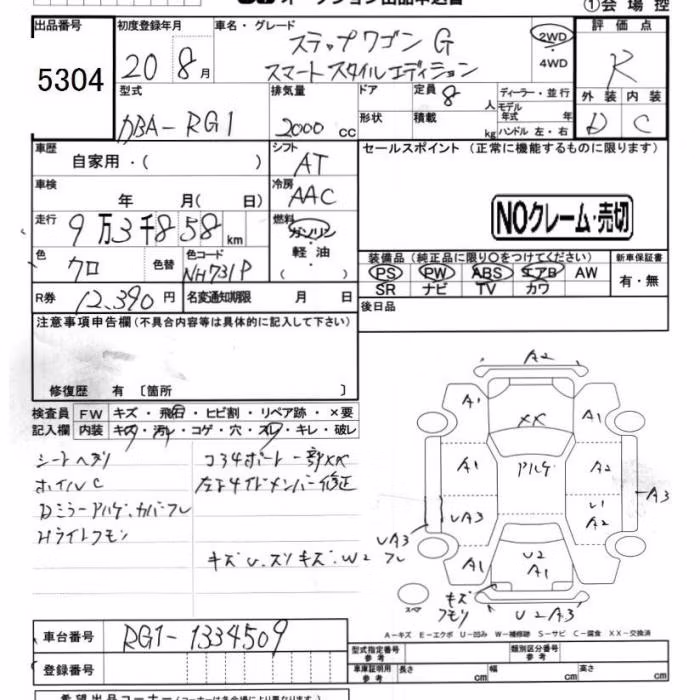 オークション出品申込書
①会場控
出品番号
5304
初度登録年月
20 8月
車名・グレード
ステップワゴン G
スマートスタイルエディション
2WD
・
4WD
評価点
R
型式
DBA-RG1
排気量
2000 cc
ドア
形状
定員
8 人
積載
kg
ディーラー・並行
モデル年式 年
ハンドル 左・右
外装 内装
D C
車歴
自家用・( )
シフト
AT
セールスポイント (正常に機能するものに限ります)
車検
年 月( 日)
冷房
AAC
NOクレーム・売切
走行
9万3千858km
燃料
ガソリン
軽油
・( )
色
クロ
色替
色コード
NH731P
装備品 (純正品に限り〇をつけてください)
新車保証書
PS PW ABS エアB AW
SR ナビ TV カワ
有・無
R券
12,390円
名変通知期限 月 日
後日品
注意事項申告欄(不具合内容等は具体的に記入して下さい)
修復歴 有 〔箇所 〕
検査員
記入欄
FW キズ・飛石・ヒビ割・リペア跡・×要
内装 キズ・汚レ・コゲ・穴・スレ・キレ・破レ
シートヘタリ
ホイルC
Dミラーアルゲ、カバーフレ
Hライトクモリ
コアサポート一部XX
左右サイドメンバー修正
キズU、スリキズ、W2 フレ
A2
A1
XX
A1
A1
アルゲ
A2
A3
UA3
U1
A2
UA3
A1
U2
A1
A1
スペア
キズ
クモリ
U2A3
A-キズ E-エクボ U-凹み W-補修跡 S-サビ C-腐食 XX-交換済
車台番号
RG1-1334509
登録番号
型式指定番号
参考
類別区分番号
参考
車庫証明用
参考
長さ cm
幅 cm
高さ cm
希望出品コーナー(コーナーは各会場により異なります)